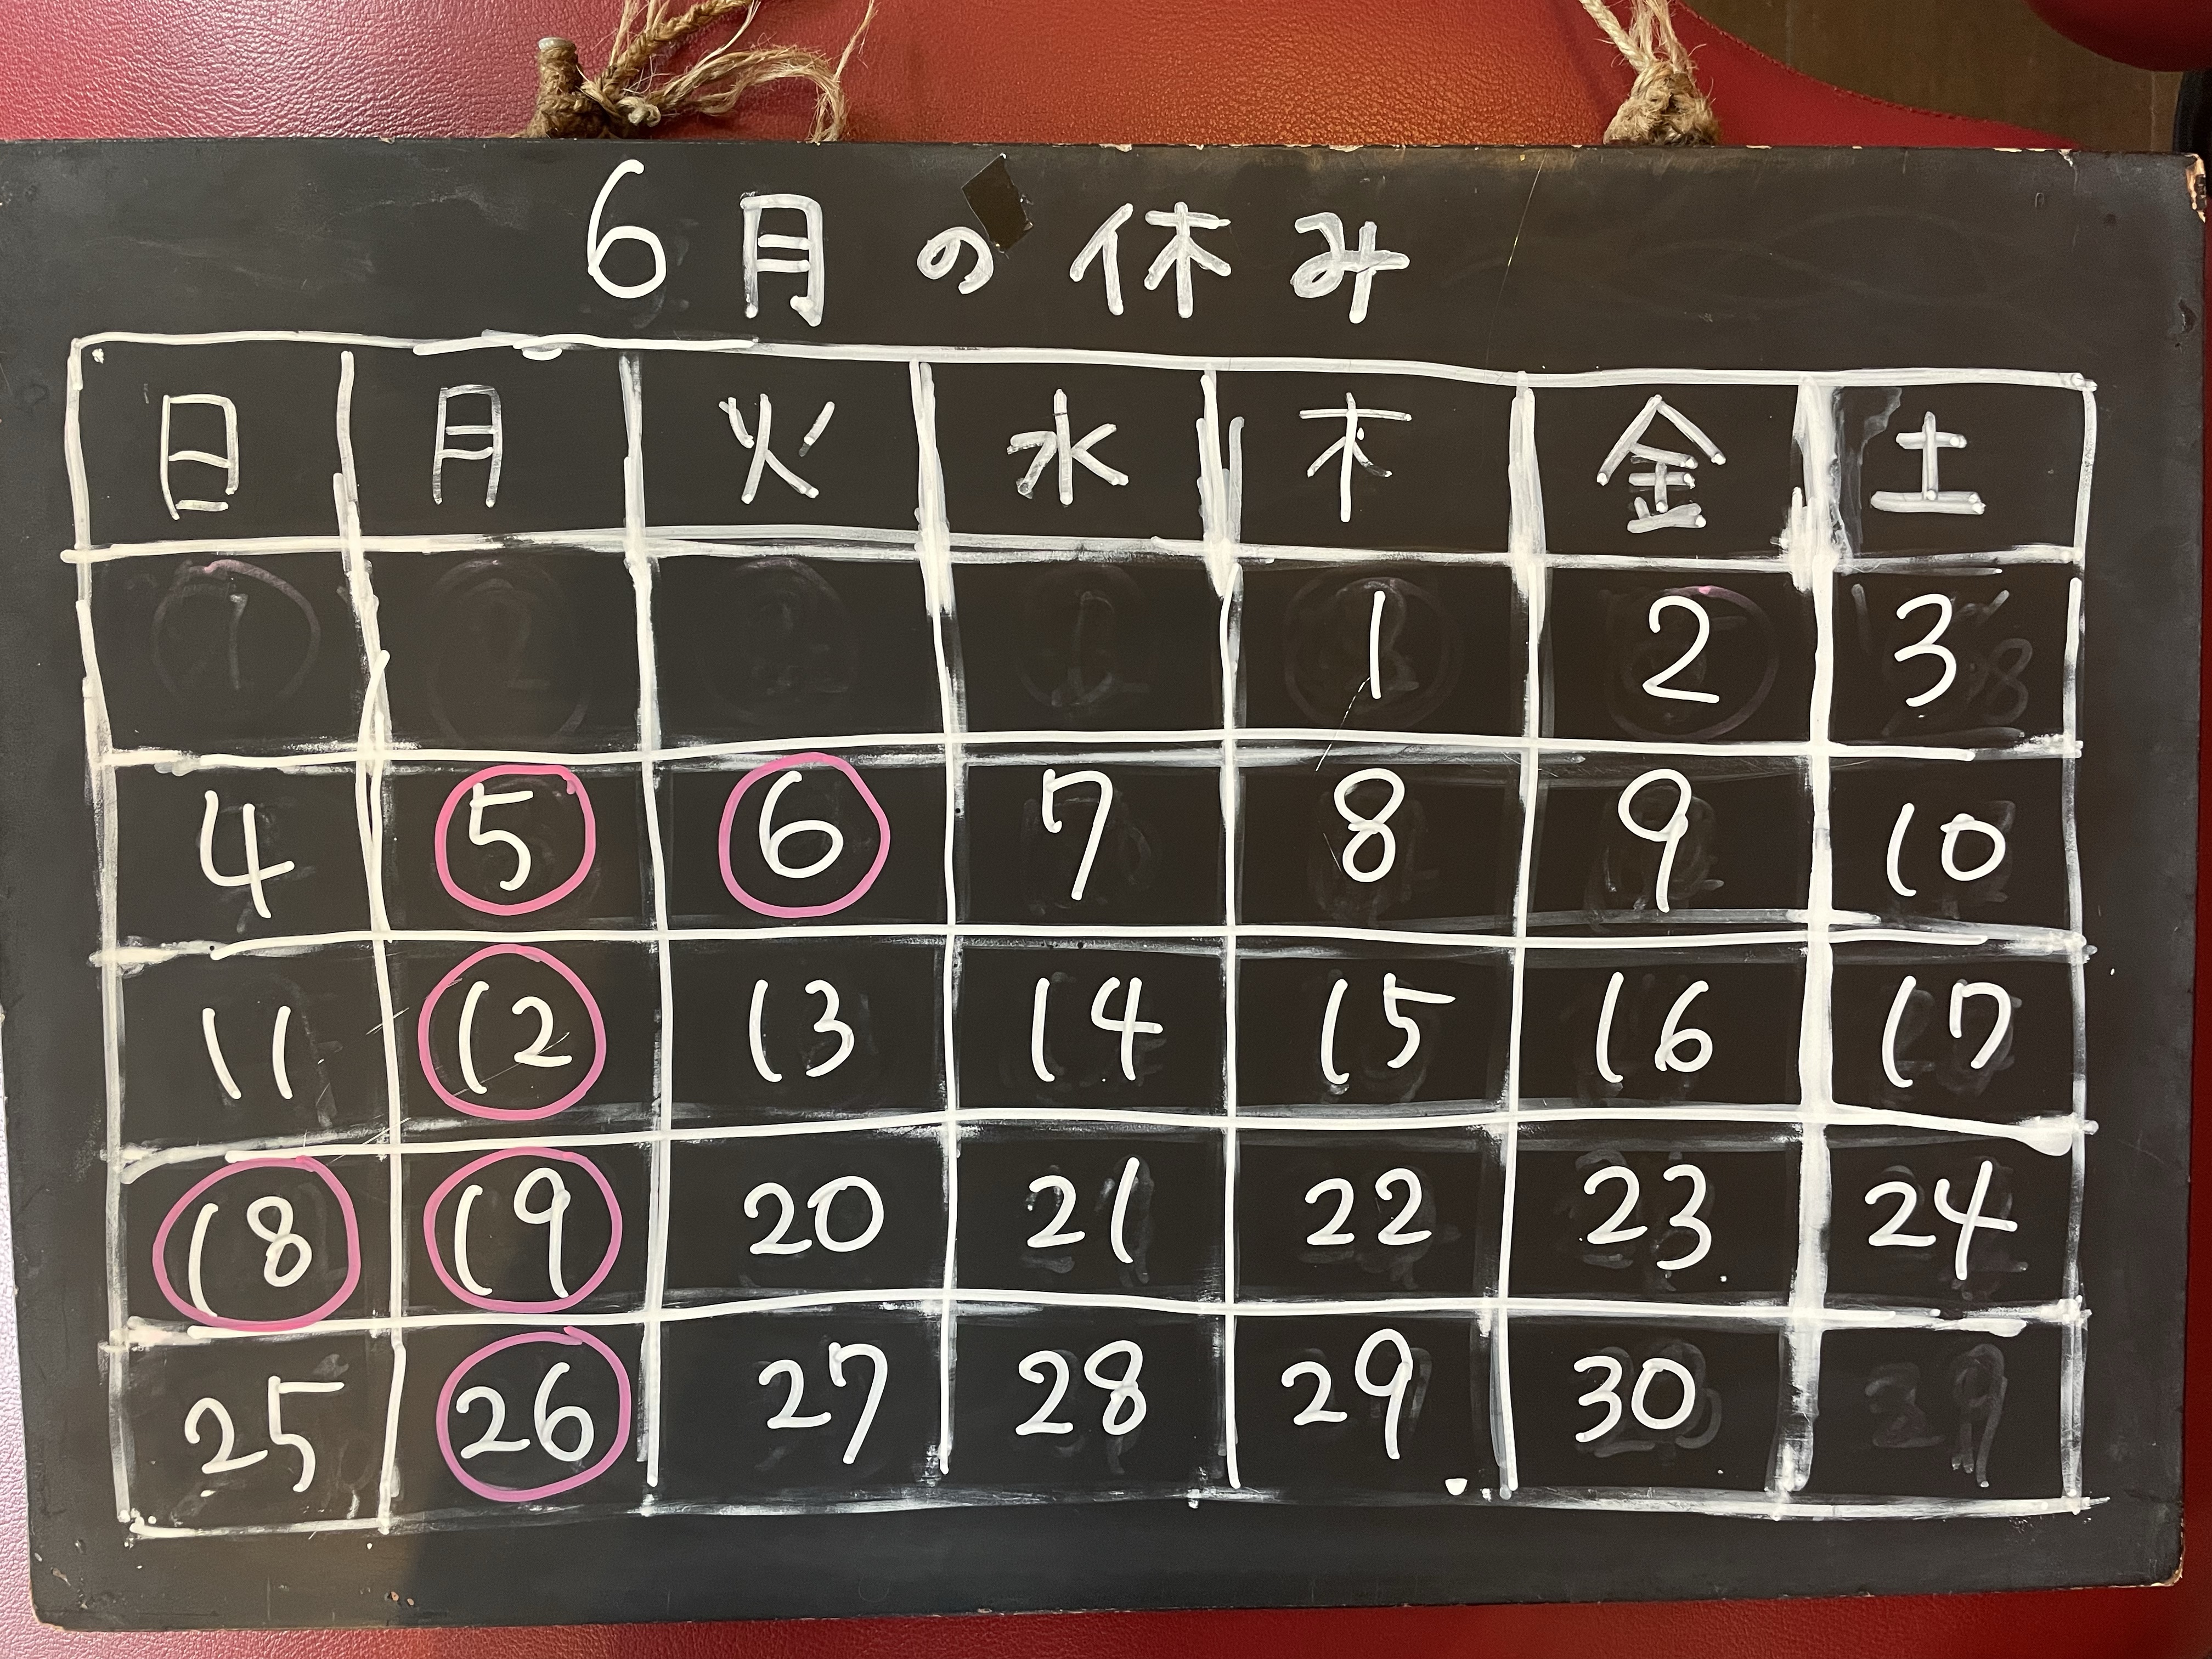 6月の休み
日 月 火 水 木 金 土
1 2 3
4 5 6 7 8 9 10
11 12 13 14 15 16 17
18 19 20 21 22 23 24
25 26 27 28 29 30